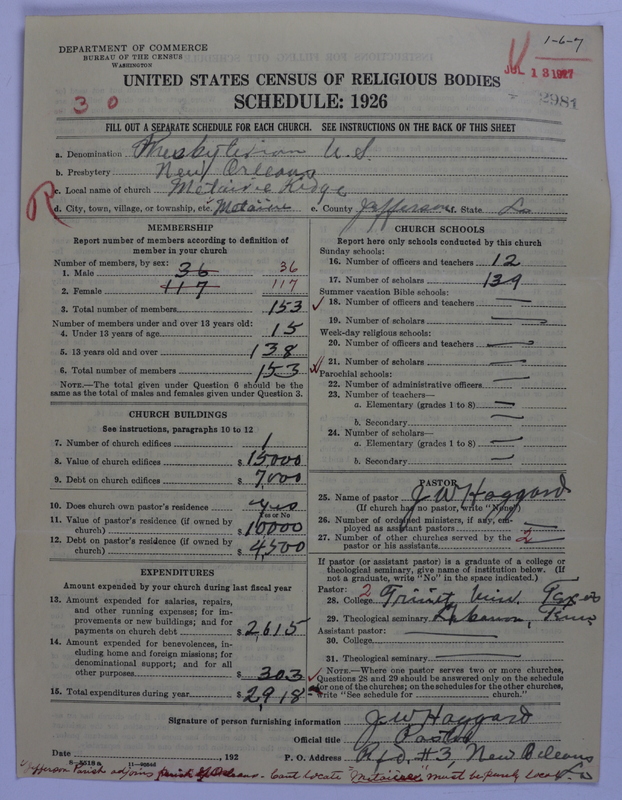 1-6-7
DEPARTMENT OF COMMERCE
BUREAU OF THE CENSUS
WASHINGTON
JUL 13 1927
2981
UNITED STATES CENSUS OF RELIGIOUS BODIES
3 0
SCHEDULE: 1926
FILL OUT A SEPARATE SCHEDULE FOR EACH CHURCH. SEE INSTRUCTIONS ON THE BACK OF THIS SHEET
a. Denomination Presbyterian U.S.
b. Presbytery New Orleans
c. Local name of church Metairie Ridge
d. City, town, village, or township, etc. "Metairie e. County Jefferson f. State La
MEMBERSHIP
Report number of members according to definition of member in your church
Number of members, by sex:
1. Male 36 36
2. Female 117 117
3. Total number of members 153
Number of members under and over 13 years old:
4. Under 13 years of age 15
5. 13 years old and over 138
6. Total number of members 153
NOTE.—The total given under Question 6 should be the same as the total of males and females given under Question 3.
CHURCH BUILDINGS
See instructions, paragraphs 10 to 12
7. Number of church edifices 1
8. Value of church edifices $ 15000
9. Debt on church edifices $ 7,000
10. Does church own pastor's residence yes
Yes or No
11. Value of pastor's residence (if owned by church) $ 10000
12. Debt on pastor's residence (if owned by church) $ 4,500
EXPENDITURES
Amount expended by your church during last fiscal year
13. Amount expended for salaries, repairs, and other running expenses; for improvements or new buildings; and for payments on church debt $ 2,615
14. Amount expended for benevolences, including home and foreign missions; for denominational support; and for all other purposes $ 303
15. Total expenditures during year $ 2,918
CHURCH SCHOOLS
Report here only schools conducted by this church
Sunday schools:
16. Number of officers and teachers 12
17. Number of scholars 139
Summer vacation Bible schools:
18. Number of officers and teachers —
19. Number of scholars —
Week-day religious schools:
20. Number of officers and teachers —
21. Number of scholars —
Parochial schools:
22. Number of administrative officers —
23. Number of teachers—
a. Elementary (grades 1 to 8) —
b. Secondary —
24. Number of scholars—
a. Elementary (grades 1 to 8) —
b. Secondary —
PASTOR
25. Name of pastor J W Haggard
(If church has no pastor, write "None")
26. Number of ordained ministers, if any, employed as assistant pastors —
27. Number of other churches served by the pastor or his assistants 2 —
If pastor (or assistant pastor) is a graduate of a college or theological seminary, give name of institution below. (If not a graduate, write "No" in the space indicated.)
Pastor: 2
28. College Trinity Univ. Texas
29. Theological seminary Lebanon, Tenn
Assistant pastor:
30. College —
31. Theological seminary —
NOTE.—Where one pastor serves two or more churches, Questions 28 and 29 should be answered only on the schedule for one of the churches; on the schedules for the other churches, write "See schedule for ________ church."
Signature of person furnishing information J W Haggard
Official title Pastor
Date ________, 192 P. O. Address Rfd. #3, New Orleans La
Jefferson Parish adjoins parish of Orleans - Cant locate "Metairie" must be purely local